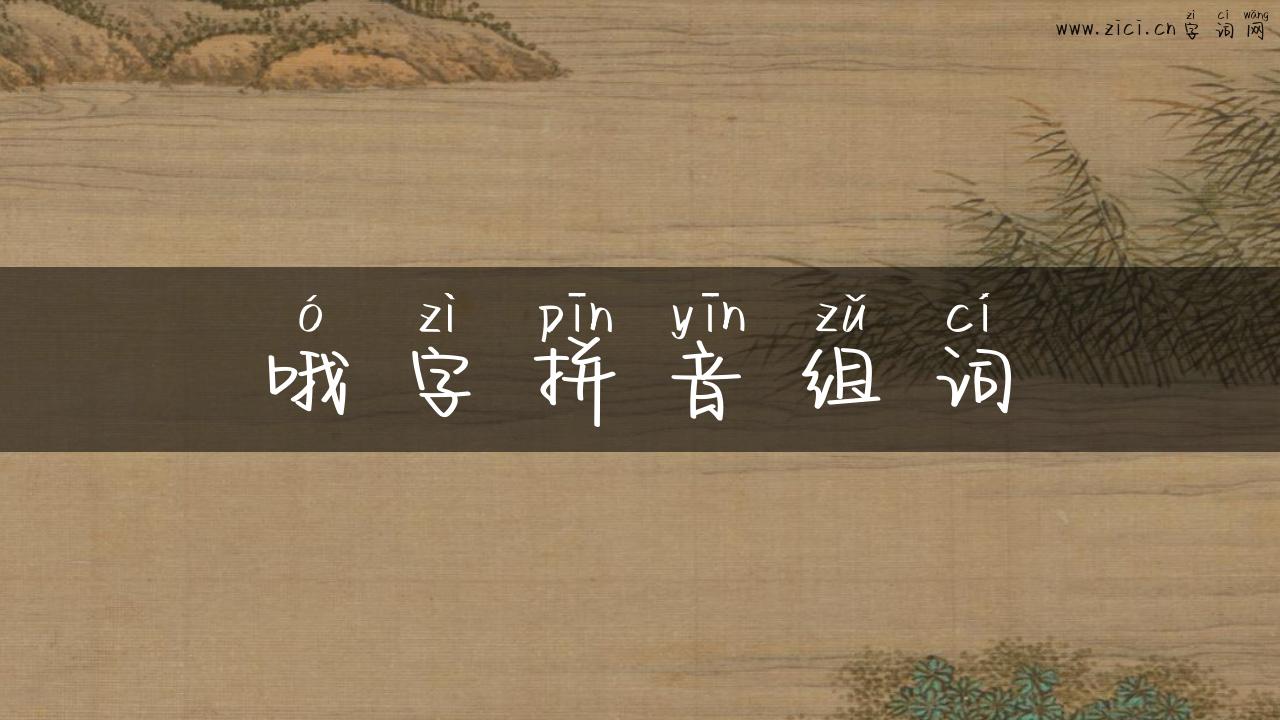 zì cí wǎng
www.zici.cn字词网
ó zì pīn yīn zǔ cí
哦字拼音组词